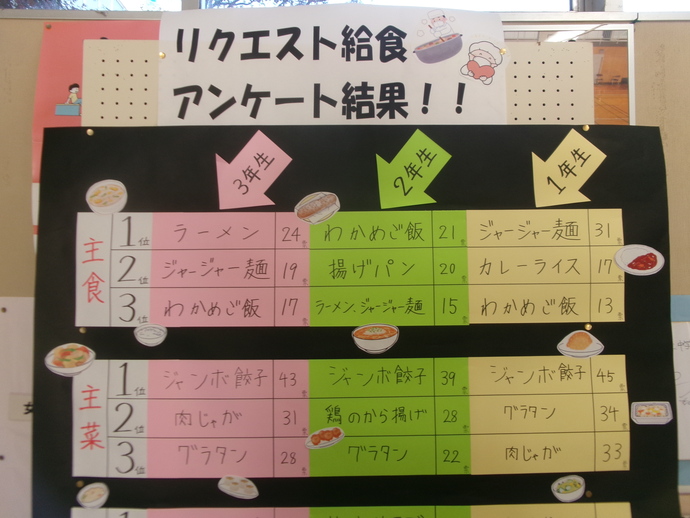 リクエスト給食
アンケート結果！！
3年生 2年生 1年生
主食
1位 ラーメン 24 わかめご飯 21 ジャージャー麺 31
2位 ジャージャー麺 19 揚げパン 20 カレーライス 17
3位 わかめご飯 17 ラーメン、ジャージャー麺 15 わかめご飯 13
主菜
1位 ジャンボ餃子 43 ジャンボ餃子 39 ジャンボ餃子 45
2位 肉じゃが 31 鶏のから揚げ 28 グラタン 34
3位 グラタン 28 グラタン 22 肉じゃが 33